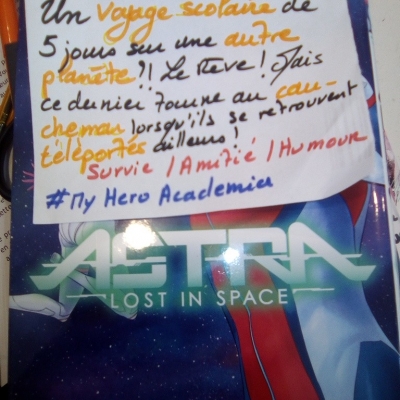 Un voyage scolaire de
5 jours sur une autre
planète?! Le Rêve! Mais
ce dernier tourne au cau-
chemar lorsqu'ils se retrouvent
téléportés ailleurs!
Survie / Amitié / Humour
#My Hero Academia
ASTRA
LOST IN SPACE